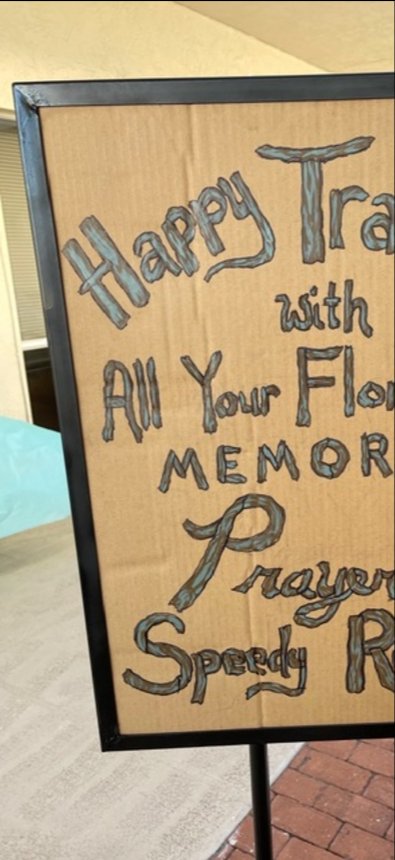 Happy Tra
with
All Your Flor
MEMOR
Prayer
Speedy R